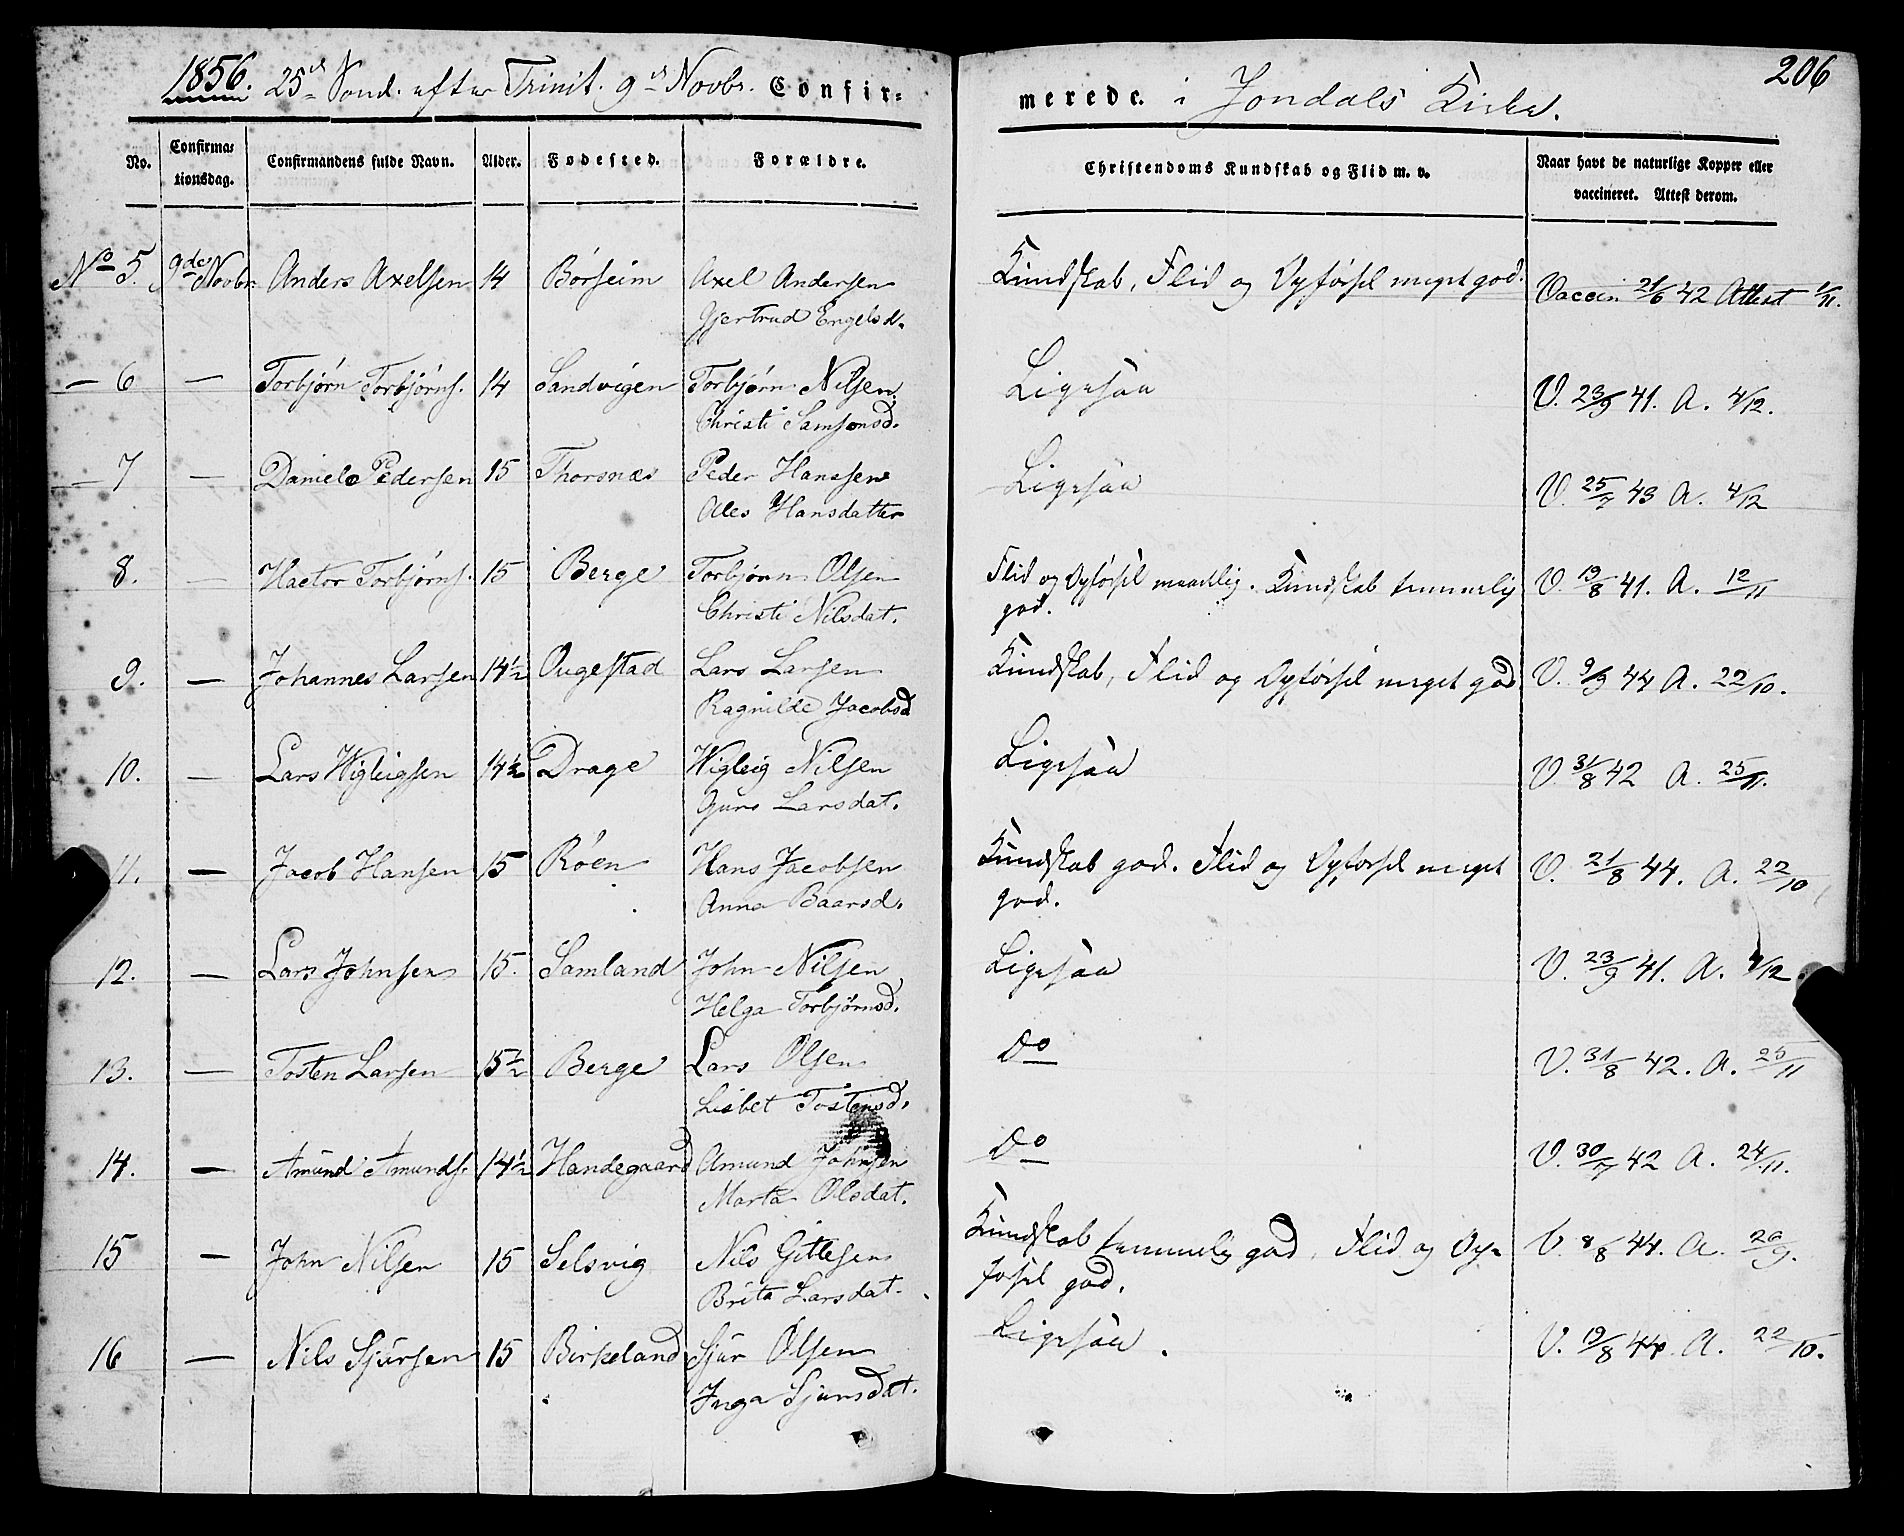 1856. 25de Sond. efter Trinit. 9de Novbr. Confir=
merede. i Jondals Kirke.
206
No.
Confirma=
tionsdag.
Confirmandens fulde Navn.
Alder.
Fødested.
Forældre.
Christendoms Kundskab og Flid m. v.
Naar havt de naturlige Kopper eller
vaccineret. Attest derom.
No 5. 9de Novbr. Anders Axelsen 14 Børseim Axel Andersen Kundskab, Flid og Opførsel meget god. Vaccin 21/6 42 Attest 1/11.
Gjertrud Engelsd.
— 6 — Torbjørn Torbjørns. 14 Sandvigen Torbjørn Nilsen Ligesaa V. 23/9 41. A. 4/12.
Christi Samsonsd.
— 7 — Daniel Pedersen 15 Thorsnæs Peder Hansen Ligesaa V. 25/7 43 A. 4/12
Ales Hansdatter
8. — Hactor Torbjørns. 15 Berge Torbjørn Olsen Flid og Opførsel maadelig. Kundskab temmelig V. 19/8 41. A. 12/11
god.
Christi Nilsdat.
9. — Johannes Larsen 14½ Ougestad Lars Larsen Kundskab, Flid og Opførsel meget god V. 9/9 44 A. 22/10.
Ragnilde Jacobsd
10. — Lars Wigleigsen 14½ Drage Wigleig Nilsen Ligesaa V. 31/8 42 A. 25/11.
Guro Larsdat.
11. — Jacob Hansen 15 Røen Hans Jacobsen Kundskab god. Flid og Opførsel meget V. 21/8 44. A. 22/10
god.
Anna Baarsd.
12. — Lars Johnsen 15. Samland John Nilsen Ligesaa V. 23/9 41. A. 4/12
Helga Torbjørnsd.
13. — Tosten Larsen 15½ Berge Lars Olsen Do V. 31/8 42. A. 25/11
Lisbet Tostensd.
14. — Amund Amunds. 14½ Handegaard Amund Johnsen Do V. 30/7 42 A. 24/11.
Marta Olsdat.
15 — John Nilsen 15 Selsvig Nils Gittlesen Kundskab temmelig god, Flid og Op= V. 8/8 44. A. 20/9.
førsel god.
Brita Larsdat.
16 — Nils Sjursen 15 Birkeland Sjur Olsen Ligesaa. V. 19/8 44. A. 22/10.
Inga Sjursdat.